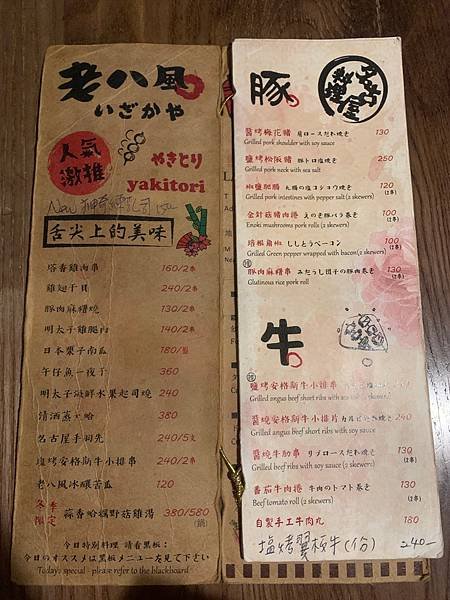 老八風
いざかや
人氣
激推
やきとり
yakitori
New
舌尖上的美味
塔香雞肉串 160/2串
雞翅干貝 240/2串
豚肉麻糬燒 130/2串
明太子雞腿肉 140/2串
日本栗子南瓜 180/盤
午仔魚一夜干 360
明太子海鮮水果起司燒 240
清酒蒸大哈 380
名古屋手羽先 240/5支
塩烤安格斯牛小排串 240/2串
老八風冰釀苦瓜 120
冬季
限定
蒜香哈蠣野菇雞湯 380/580
(鍋)
今日特別料理 請看黑板:
今日のオススメは黒板メニューを見て下さい
Today's special - please refer to the blackboard
豚
料理屋
醬烤梅花豬 肩ロースだれ焼き 130
Grilled pork shoulder with soy sauce
塩烤松阪豬 豚トロ塩焼き 250
Grilled pork neck with sea salt
椒鹽肥腸 大腸の塩コショウ焼き 160
Grilled pork intestines with pepper salt(2 skewers)
(2串)
金針菇豬肉捲 えのき豚バラ巻き 100
Enoki mushrooms pork rolls (2 skewers)
(2串)
培根角椒 ししとうベーコン 100
Grilled Green pepper wrapped with bacon(2 skewers)
(2串)
豚肉麻糬串 みたらし団子の豚肉巻き 130
Glutinous rice pork roll
(2串)
牛
鹽烤安格斯牛小排串
Grilled angus beef short ribs with sea salt
醬燒安格斯牛小排片 カルビだれ焼き 240
Grilled angus beef short ribs with soy sauce
醬燒牛肋串 リブロースだれ焼き 130
Grilled beef ribs with soy sauce (2 skewers)
(2串)
番茄牛肉捲 牛肉のトマト巻き 160
Beef tomato roll (2 skewers)
(2串)
自製手工牛肉丸 180
塩烤翼板牛(份) 240-